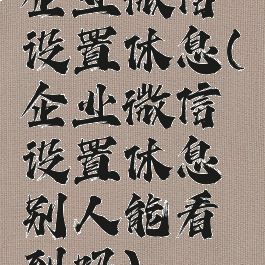 企业微信
设置休息(
企业微信
设置休息
别人能看
到吗)